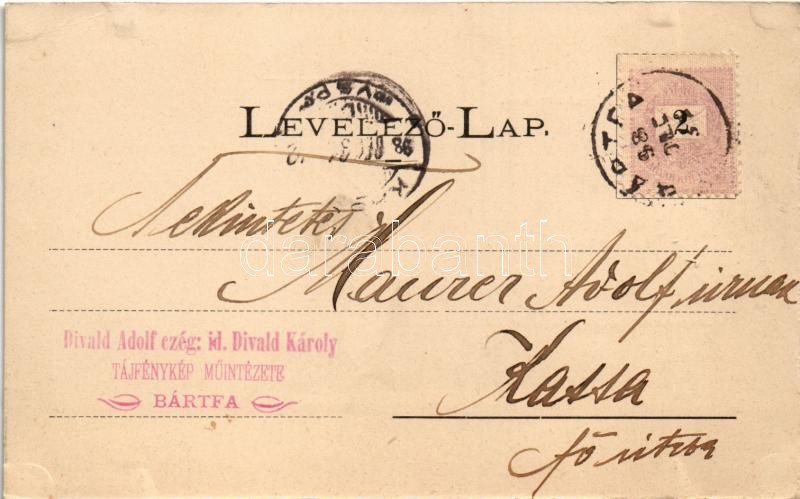 LEVELEZŐ-LAP.
2
BÁRTFA
98
Tekintetes
Maurer Adolf úrnak
darabanth
Divald Adolf czég: id. Divald Károly
TÁJFÉNYKÉP MŰINTÉZETE
BÁRTFA
Kassa
fő utcza